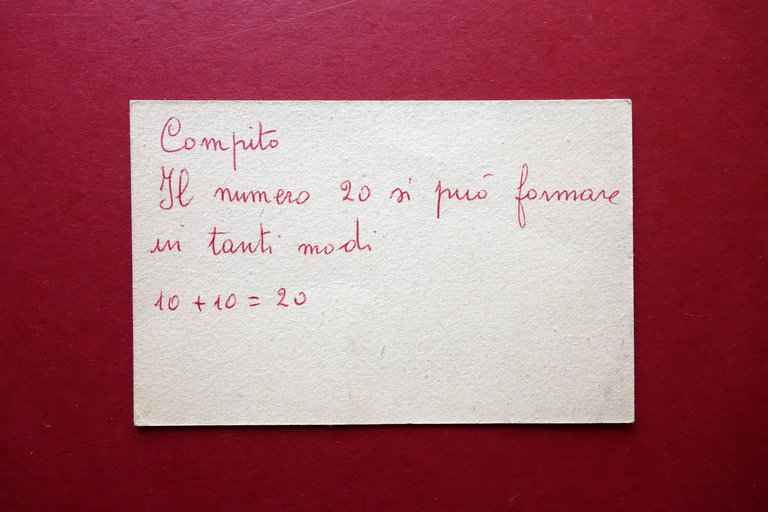 Compito
Il numero 20 si può formare
in tanti modi
10 + 10 = 20